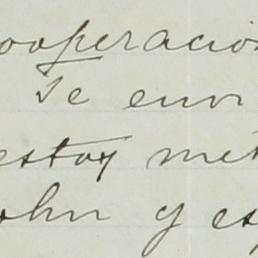 ooperació
Te envi
estoy met
ohn y es